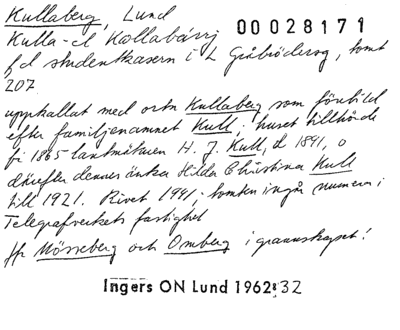 Kullaberg, Lund
00028171
Kulla-el Kollabärj
fd studentkasern i L Gråbrödersg, tomt
207
uppkallat med ortn Kullaberg som förebild
efter familjenamnet Kull; huset tillhörde
fr 1865 lantmätaren H. J. Kull, d 1891, o
därefter dennes änka Hilda Christina Kull
till 1921. Rivet 1941; tomten ingår numera i
Telegrafverkets fastighet
Jfr Mösseberg och Omberg i grannskapet!
Ingers ON Lund 1962:32